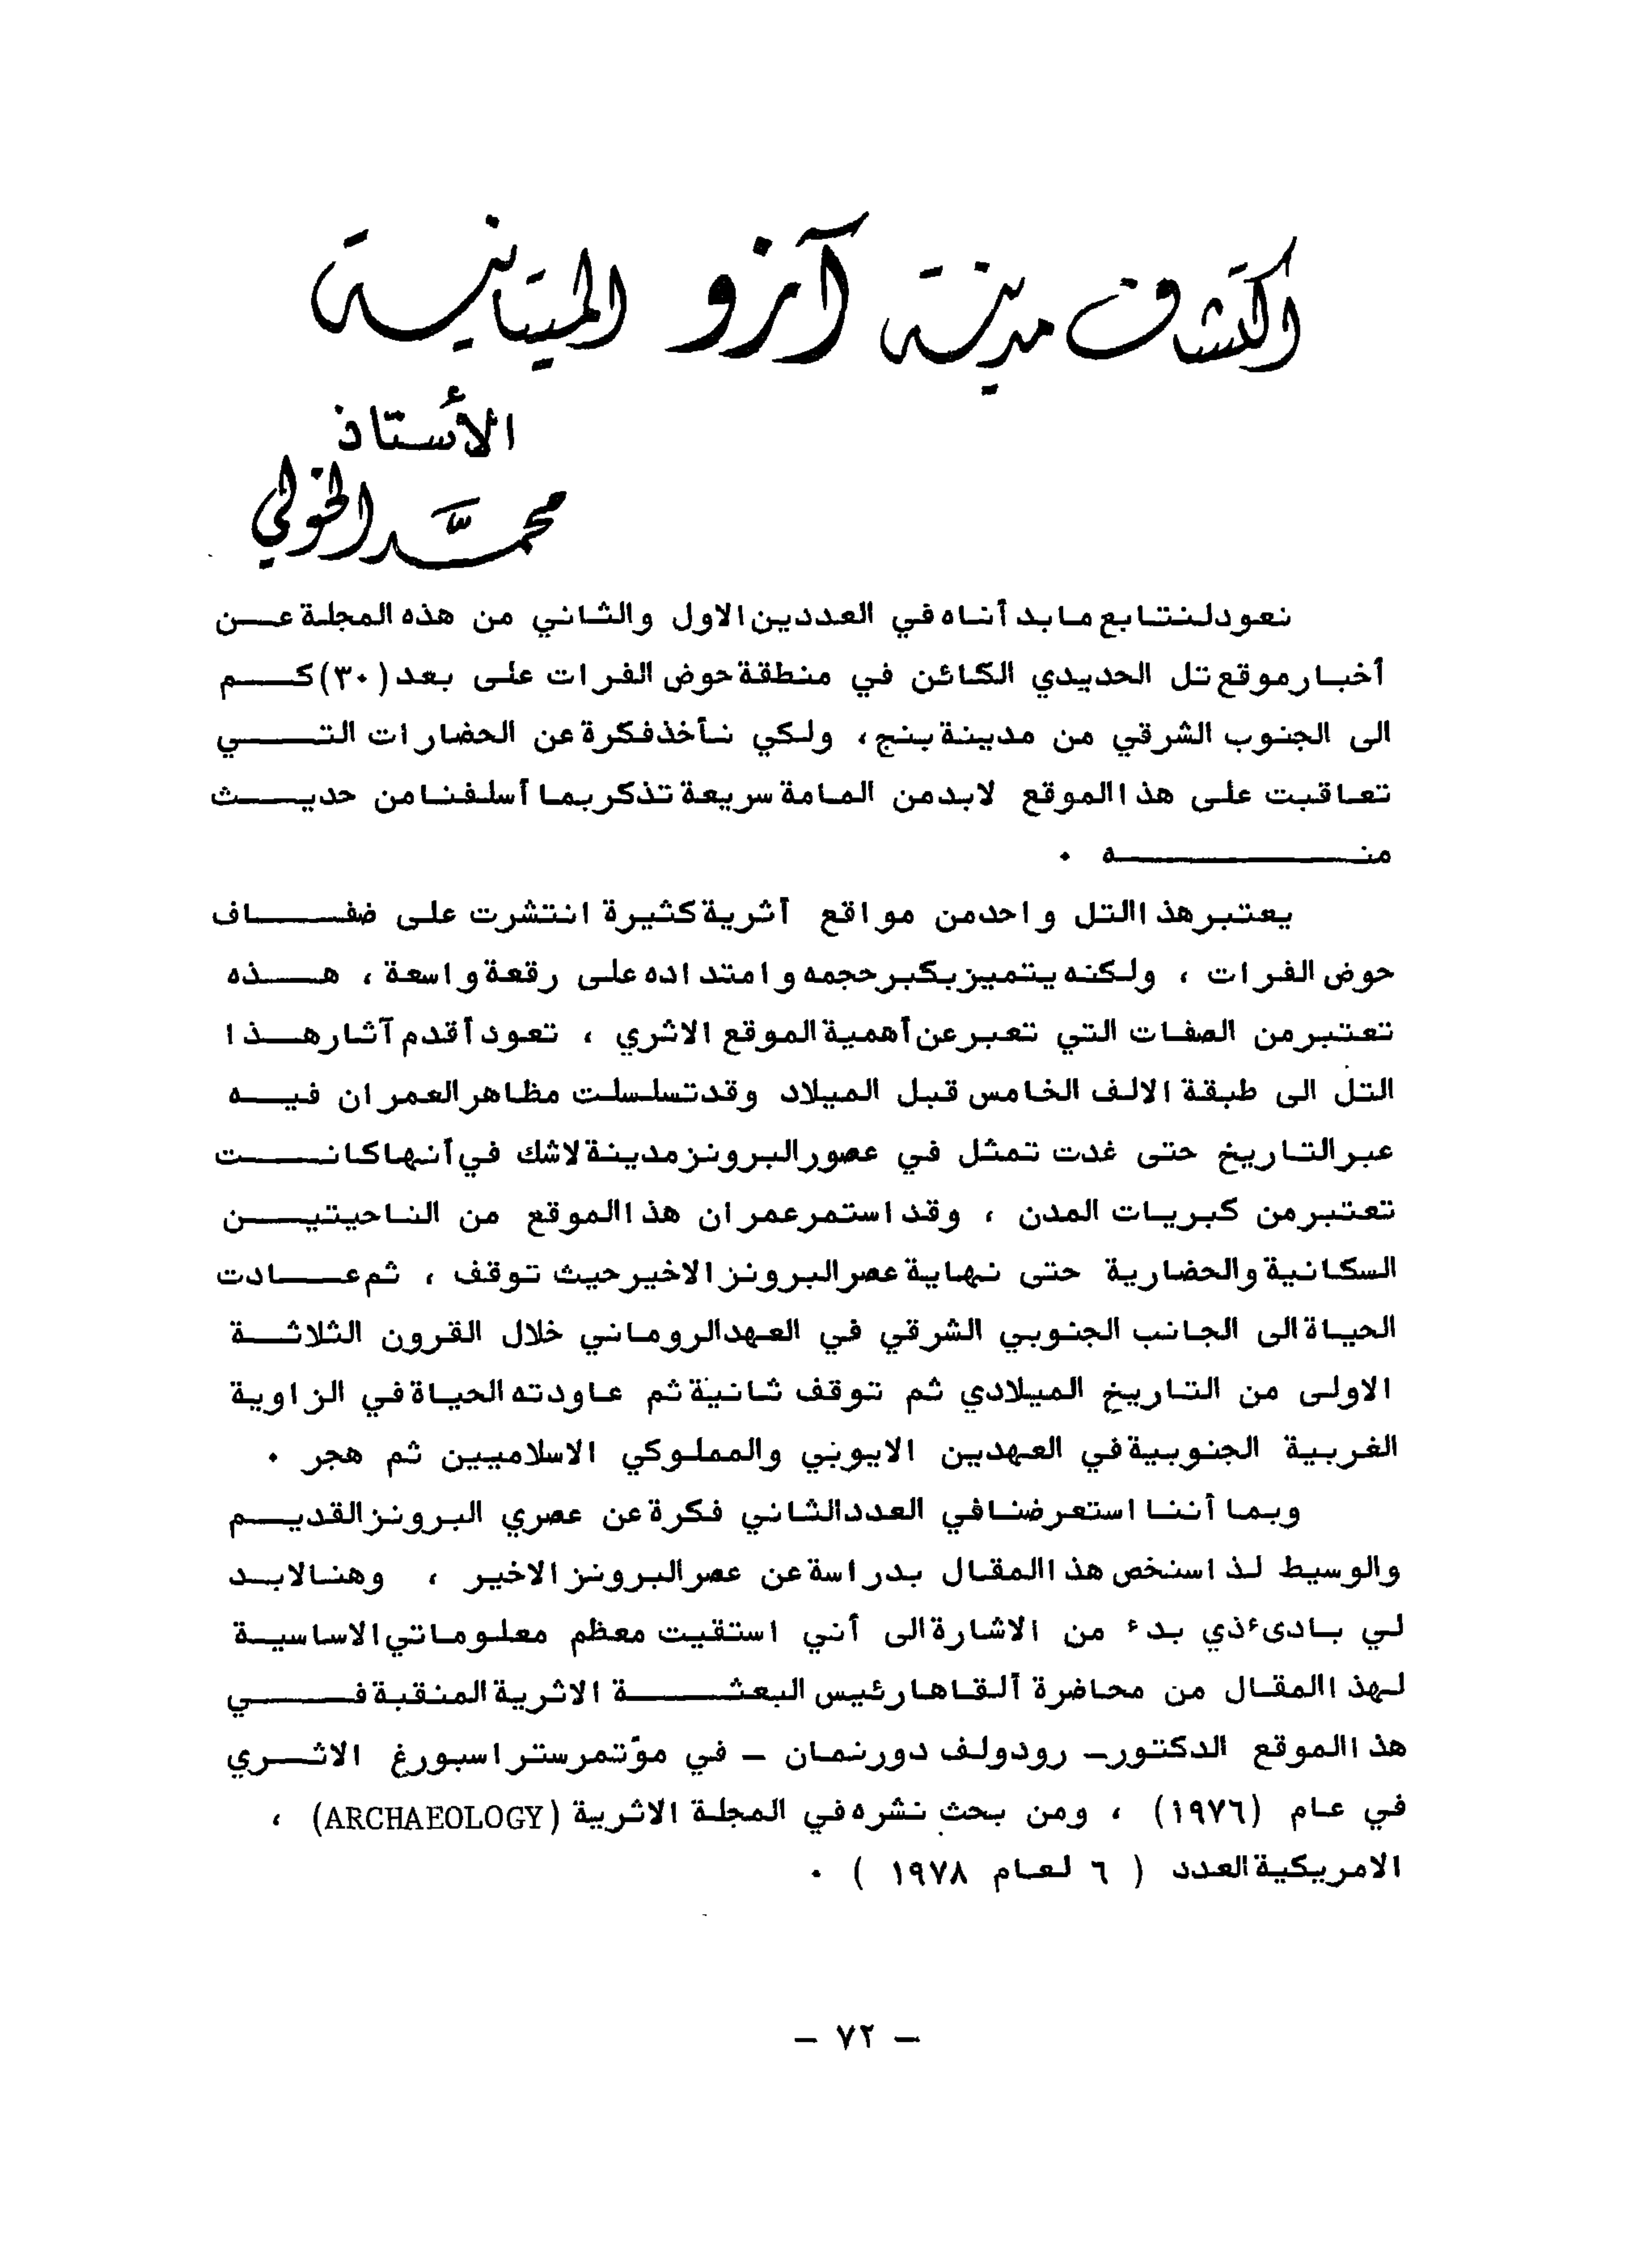 اكتشاف مدينة آزو الميتانية
الأستاذ
محمَّد الخولي
نعود لنتابع ما بدأناه في العددين الاول والثاني من هذه المجلة عن
أخبار موقع تل الحديدي الكائن في منطقة حوض الفرات على بعد (٣٠) كم
الى الجنوب الشرقي من مدينة بنج، ولكي نأخذ فكرة عن الحضارات التي
تعاقبت على هذا الموقع لابد من المامة سريعة تذكر بما أسلفنا من حديث
منه .
يعتبر هذا التل واحد من مواقع أثرية كثيرة انتشرت على ضفاف
حوض الفرات ، ولكنه يتميز بكبر حجمه وامتداده على رقعة واسعة ، هذه
تعتبر من الصفات التي تعبر عن أهمية الموقع الاثري ، تعود أقدم آثار هذا
التل الى طبقة الالف الخامس قبل الميلاد وقد تسلسلت مظاهر العمران فيه
عبر التاريخ حتى غدت تمثل في عصور البرونز مدينة لاشك في أنها كانت
تعتبر من كبريات المدن ، وقد استمر عمران هذا الموقع من الناحيتين
السكانية والحضارية حتى نهاية عصر البرونز الاخير حيث توقف ، ثم عادت
الحياة الى الجانب الجنوبي الشرقي في العهد الروماني خلال القرون الثلاثة
الاولى من التاريخ الميلادي ثم توقف ثانية ثم عاودته الحياة في الزاوية
الغربية الجنوبية في العهدين الايوبي والمملوكي الاسلاميين ثم هجر .
وبما أننا استعرضنا في العدد الثاني فكرة عن عصري البرونز القديم
والوسيط لذا سنخص هذا المقال بدراسة عن عصر البرونز الاخير ، وهنا لابد
لي بادىء ذي بدء من الاشارة الى أني استقيت معظم معلوماتي الاساسية
لهذا المقال من محاضرة ألقاها رئيس البعثة الاثرية المنقبة في
هذا الموقع الدكتور - رودولف دورنمان - في مؤتمر ستراسبورغ الاثري
في عام (١٩٧٦) ، ومن بحث نشره في المجلة الاثرية (ARCHAEOLOGY) ،
الامريكية العدد ( ٦ لعام ١٩٧٨ ) .
- ٧٢ -